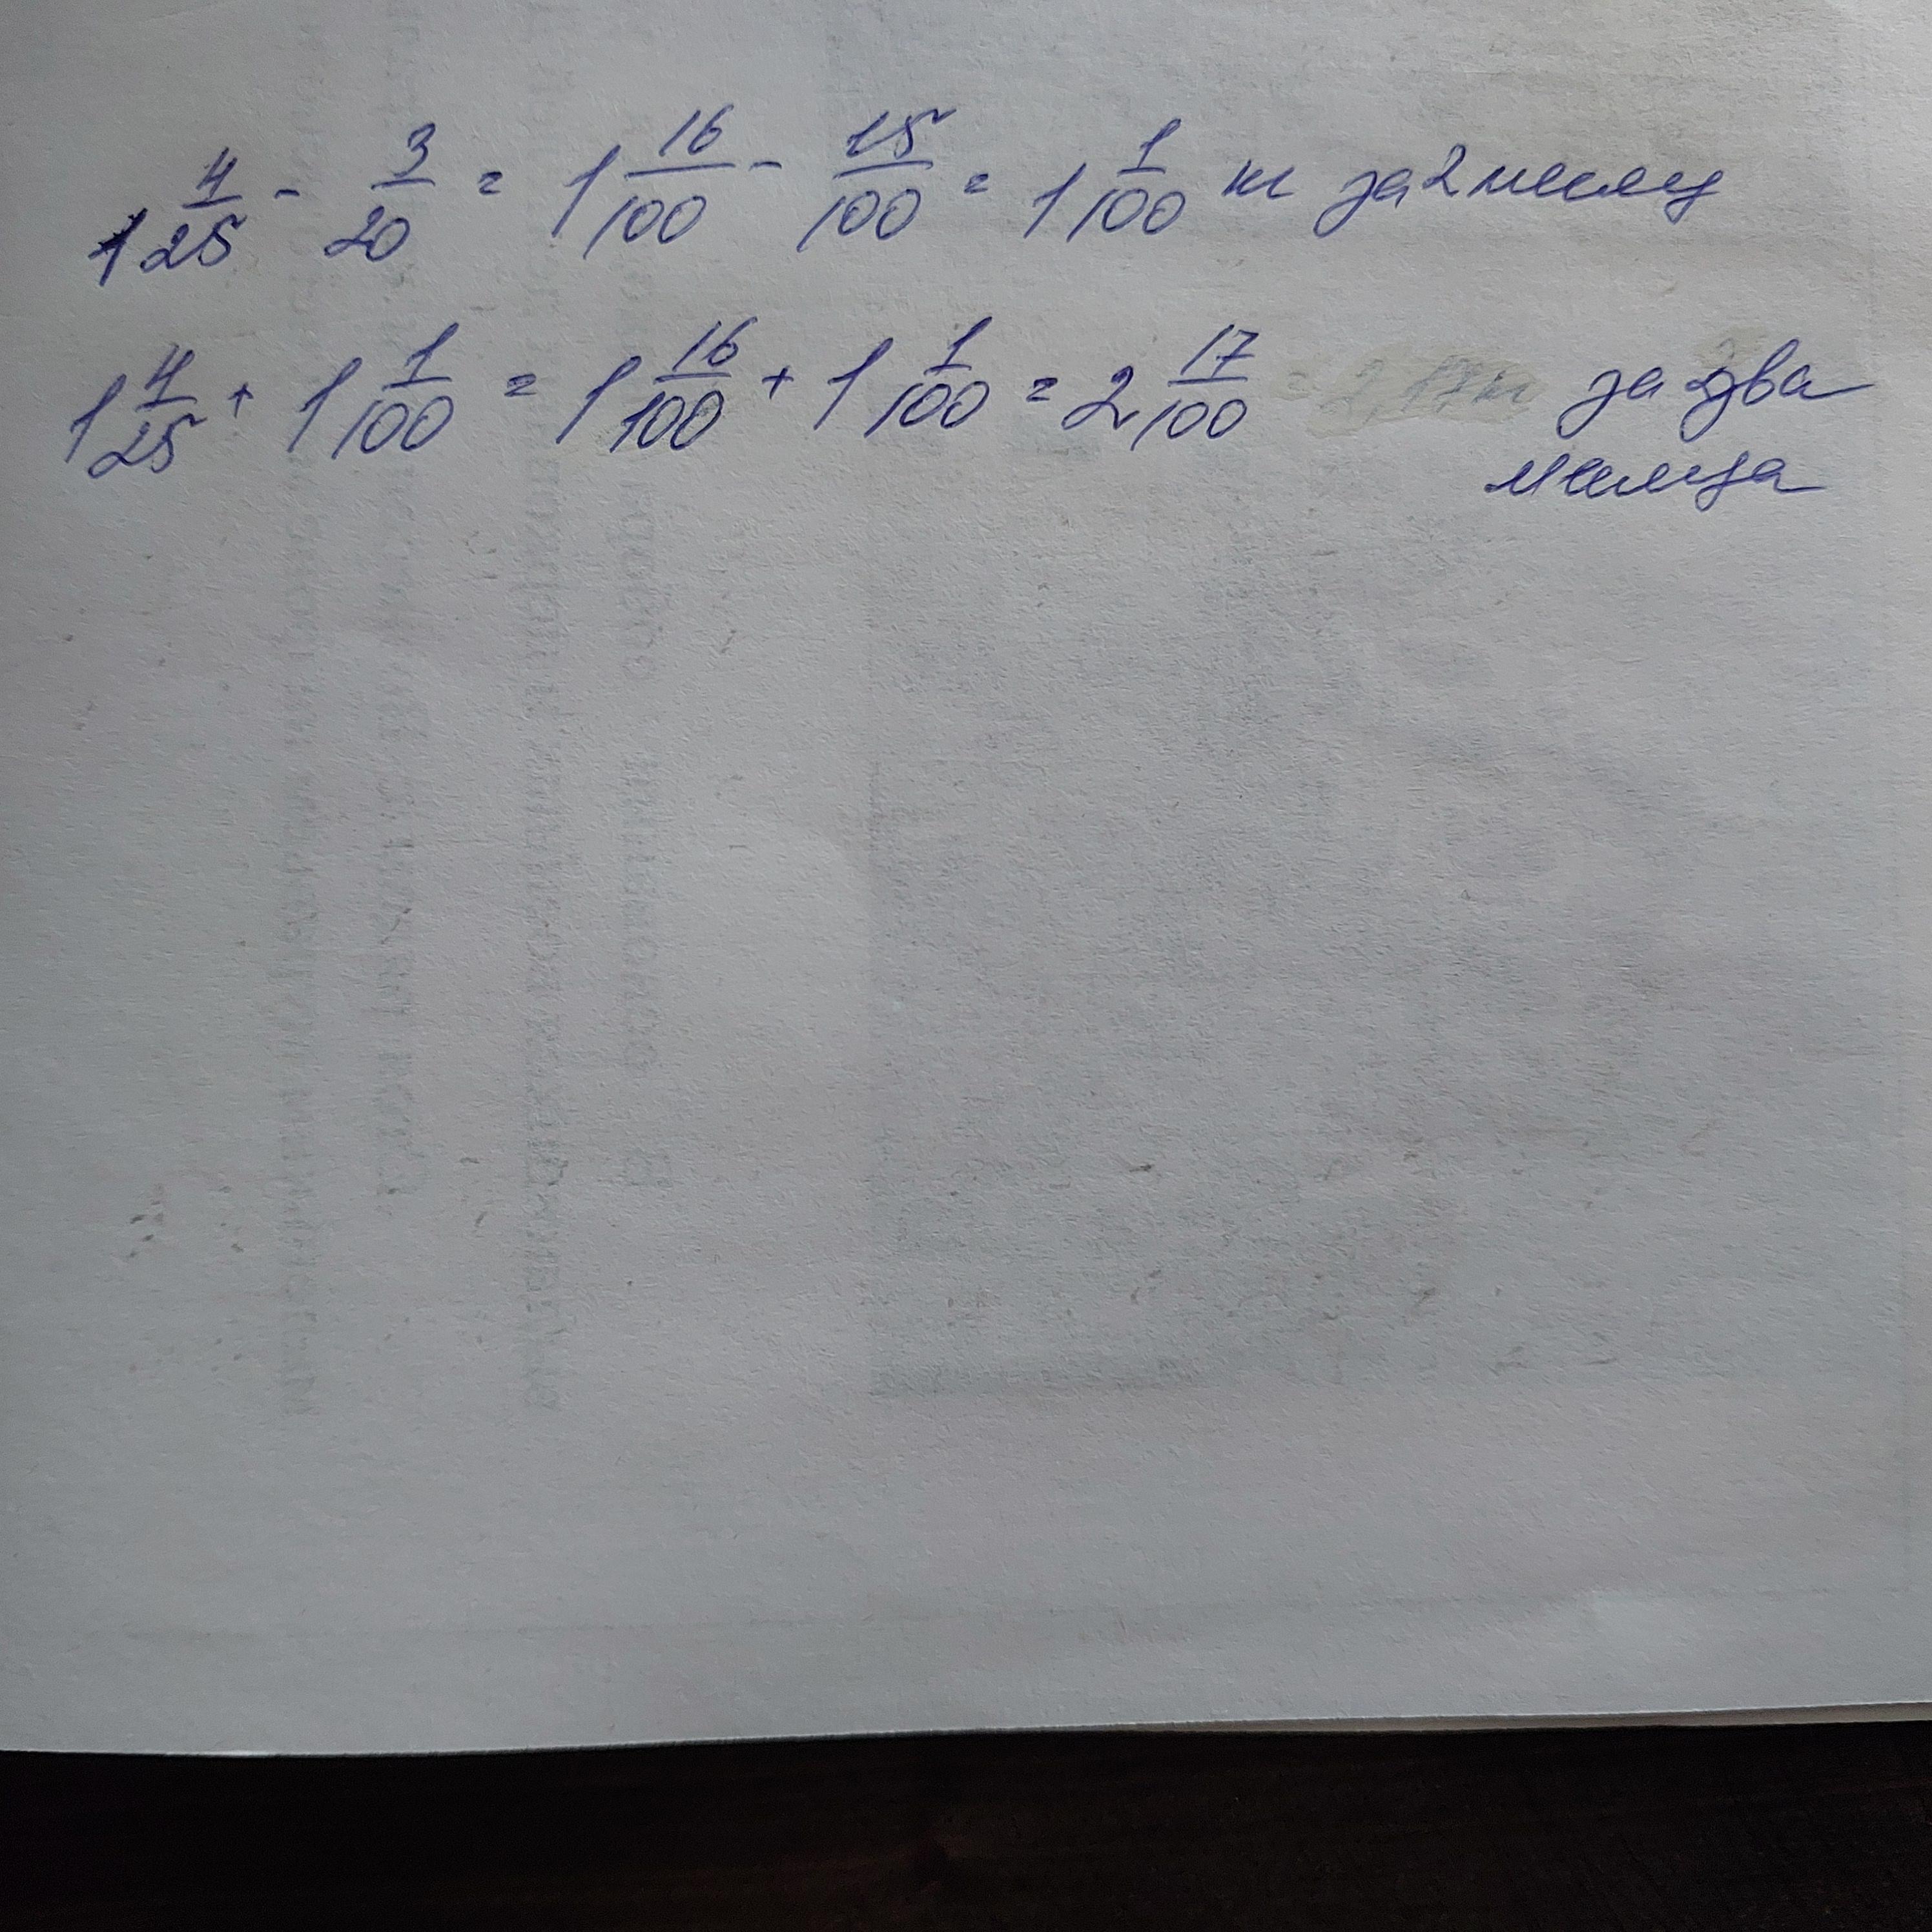 1 4/25 - 3/20 = 1 16/100 - 15/100 = 1 1/100 кг за 2 месяц
1 4/25 + 1 1/100 = 1 16/100 + 1 1/100 = 2 17/100 = 2,17кг за два
месяца